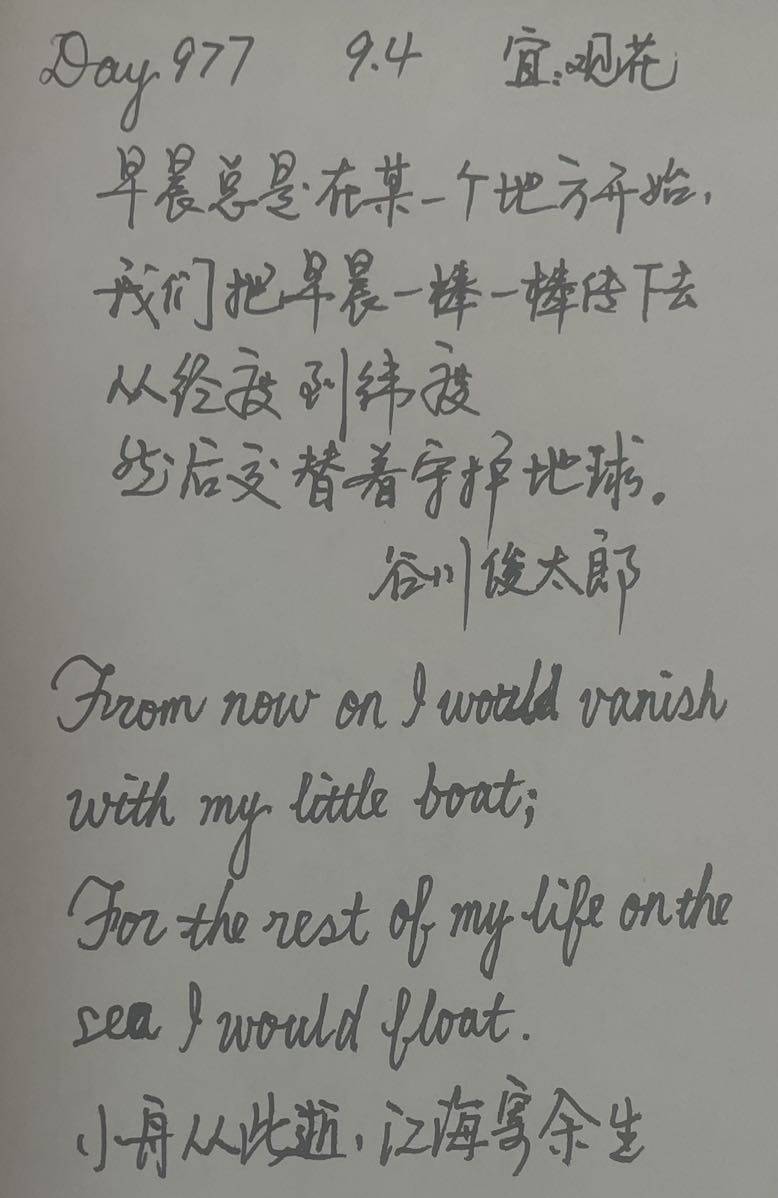 Day 977 9.4 宜:观花
早晨总是在某一个地方开始,
我们把早晨一棒一棒传下去
从经度到纬度
然后交替着守护地球。
谷川俊太郎
From now on I would vanish
with my little boat;
For the rest of my life on the
sea I would float.
小舟从此逝,江海寄余生